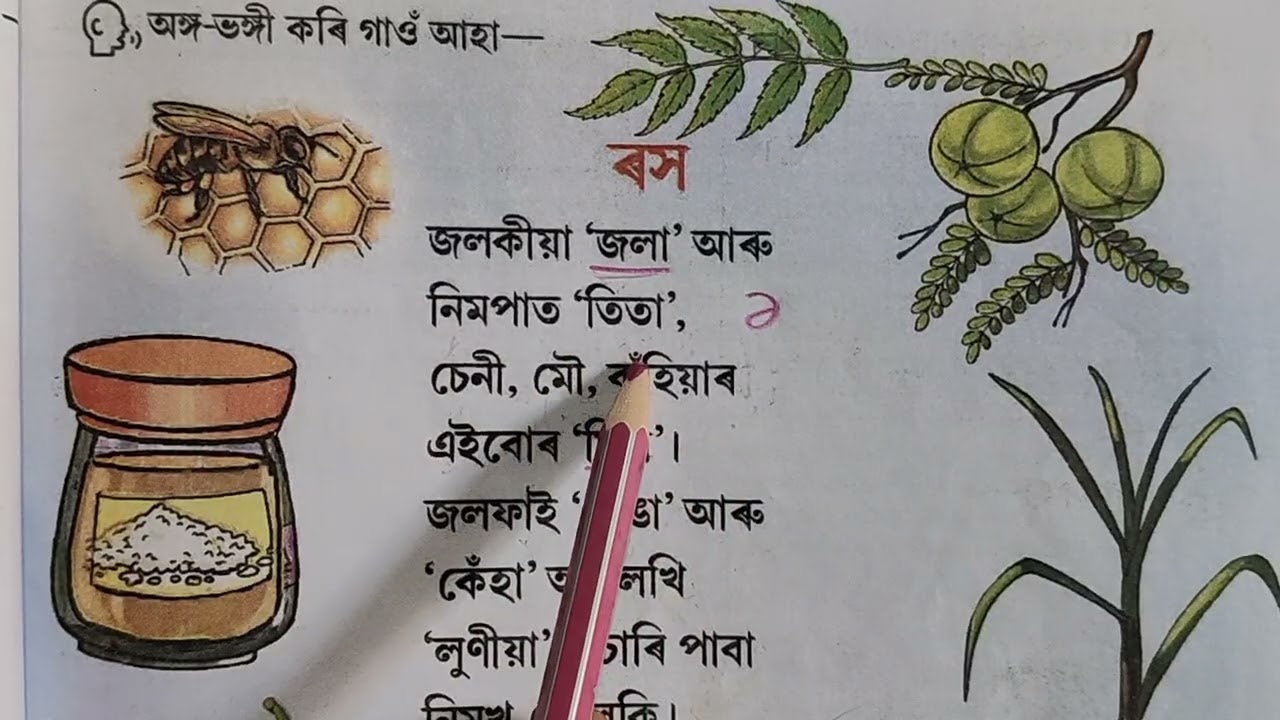 অঙ্গ-ভঙ্গী কৰি গাওঁ আহা—
ৰস
জলকীয়া ‘জলা’ আৰু
নিমপাত ‘তিতা’,
চেনী, মৌ, কুঁহিয়াৰ
এইবোৰ
জলফাই আৰু
‘কেঁহা’
‘লুণীয়া’ পাবা